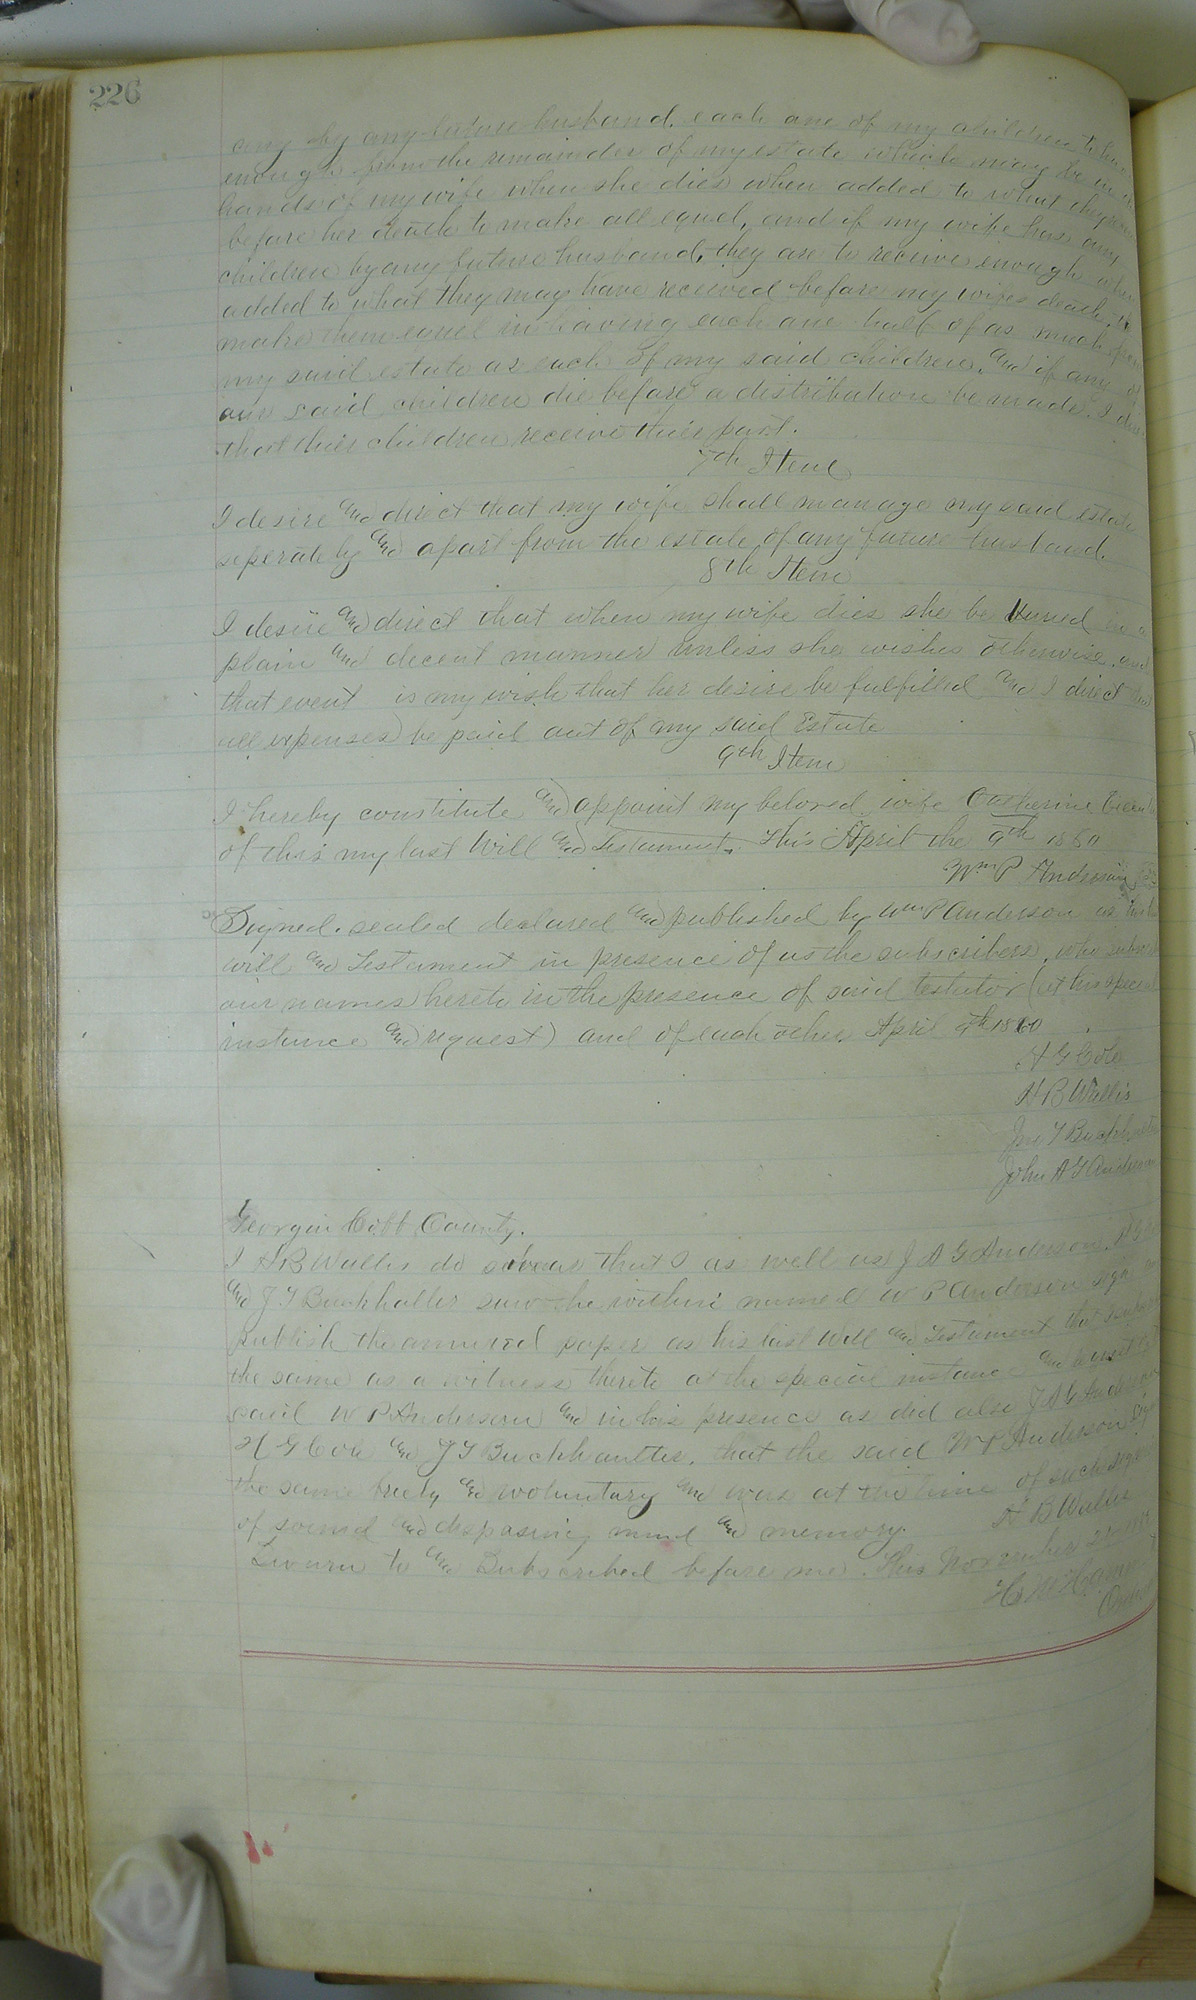 226
any by any future husband, each one of my children to have
enough from the remainder of my estate which may be in
hands of my wife when she dies when added to what they
before her death to make all equal, and if my wife has any
children by any future husband, they are to receive enough when
added to what they may have received before my wifes death, to
make them equal in having each one half of as much
my said estate as each of my said children. And if any of
our said children die before a distribution be made. I
that their children receive their part.
7th Item
I desire and direct that my wife shall manage my said estate
seperately and apart from the estate of any future husband.
8th Item
I desire and direct that when my wife dies she be buried in a
plain and decent manner unless she wishes otherwise. and
that event is my wish that her desire be fulfilled and I direct that
all expenses be paid out of my said Estate
9th Item
I hereby constitute and appoint my beloved wife Catherine
of this my last Will and Testament. This April the 9th 1860
Wm P Anderson
Signed. sealed declared and published by Wm P Anderson as
will and Testament in presence of us the subscribers, who
our names hereto in the presence of said testator (at his special
instance and request) and of each other April 9th 1860
H G Cole
H B Wallis
Jno T Buckhalter
John A G Anderson
Georgia Cobb County.
I H B Wallis do swear that I as well as J A G Anderson.
and J T Buckhalter saw the within named W P Anderson sign
publish the annexed paper as his last Will and Testament that
the same as a witness thereto at the special instance and request
said W P Anderson and in his presence as did also J A G Anderson
H G Cole and J T Buckhaulter, that the said W P Anderson
the same freely and voluntary and was at the time of such
of sound and disposing mind and memory. H B Wallis
Sworn to and Subscribed before me. This November